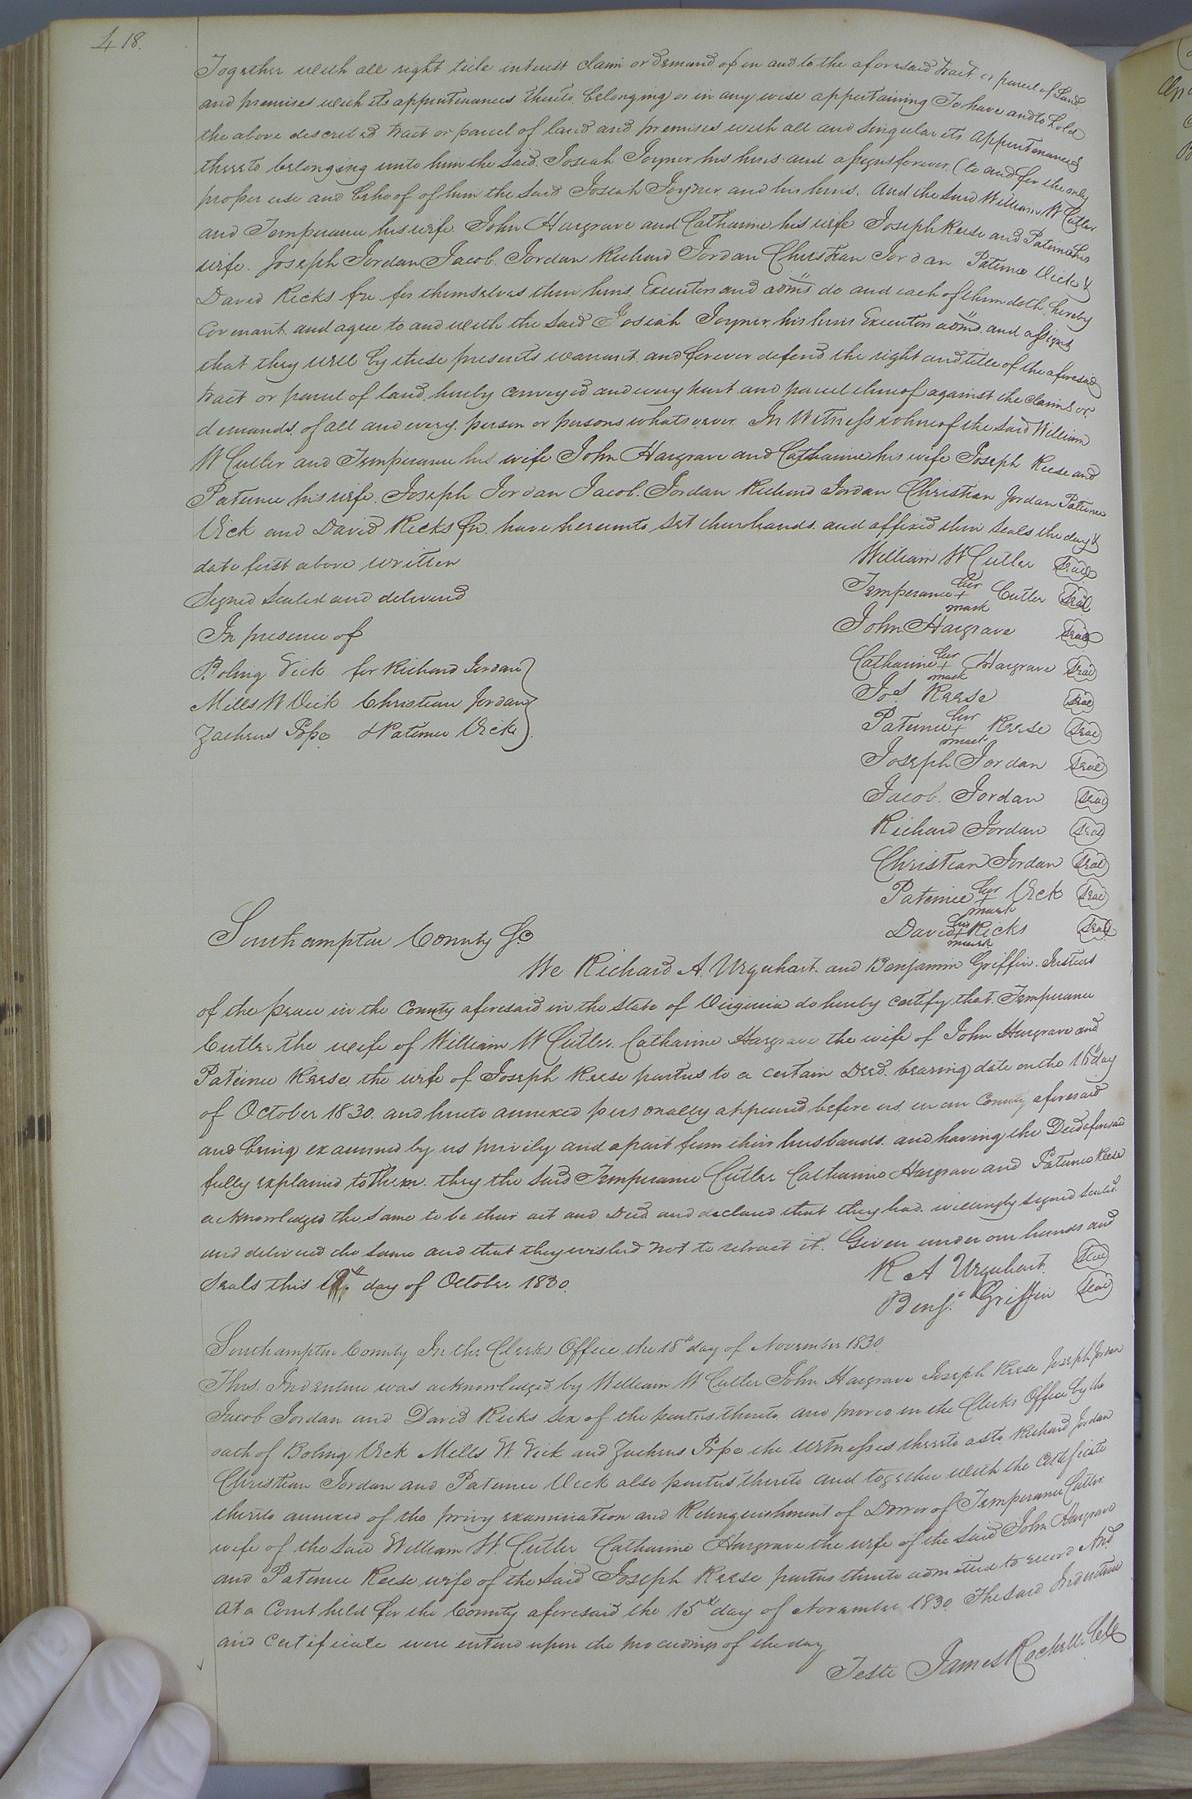 418.
Together with all right title interest claim or demand of in and to the aforesaid tract or parcel of Land
and premises with its appurtenances thereto belonging or in any wise appertaining To have and to hold
the above described tract or parcel of land and premises with all and singular its appurtenances
thereto belonging unto him the said Josiah Joyner his heirs and assigns forever (to and for the only
proper use and behoof of him the said Josiah Joyner and his heirs. And the said William W Cutler
and Temperance his wife John Hargrave and Catharine his wife Joseph Reese and Patience his
wife. Joseph Jordan Jacob. Jordan Richard Jordan Christian Jordan Patience Vick &
David Ricks for themselves their heirs Executors and adm's do and each of them doth hereby
covenant and agree to and with the said Josiah Joyner his heirs Executors adm's and assigns
that they will by these presents warrant and forever defend the right and title of the aforesaid
tract or parcel of land hereby conveyed and every part and parcel thereof against the claims or
demands of all and every person or persons whatsoever In Witness whereof the said William
W Cutler and Temperance his wife John Hargrave and Catharine his wife Joseph Reese and
Patience his wife Joseph Jordan Jacob. Jordan Richard Jordan Christian Jordan Patience
Vick and David Ricks have hereunto set their hands and affixed their seals the day &
date first above written
William W Cutler Seal
Signed sealed and delivered
Temperance her + mark Cutler Seal
In presence of
John Hargrave Seal
Boling Vick for Richard Jordan
Catharine her + mark Hargrave Seal
Mills W Vick Christian Jordan
Jos Reese Seal
Zacheus Pope & Patience Vick
Patience her + mark Reese Seal
Joseph Jordan Seal
Jacob. Jordan Seal
Richard Jordan Seal
Christian Jordan Seal
Patience her + mark Vick Seal
David his + mark Ricks Seal
Southampton County Sc
We Richard A. Urquhart and Benjamin Griffin Justices
of the peace in the County aforesaid in the State of Virginia do hereby certify that Temperance
Cutler the wife of William W Cutler. Catharine Hargrave the wife of John Hargrave and
Patience Reese the wife of Joseph Reese parties to a certain Deed bearing date on the day
of October 1830. and hereto annexed personally appeared before us in our County aforesaid
and being examined by us privily and apart from their husbands. and having the Deed aforesaid
fully explained to them. they the said Temperance Cutler Catharine Hargrave and Patience Reese
acknowledged the same to be their act and Deed and declared that they had willingly signed sealed
and delivered the same and that they wished not to retract it. Given under our hands and
Seals this day of October 1830.
R A Urquhart. Seal
Benj. Griffin Seal
Southampton County In the Clerks Office the 18th day of November 1830.
This Indenture was acknowledged by William W Cutler John Hargrave Joseph Reese Joseph Jordan
Jacob Jordan and David Ricks Six of the parties thereto and proved in the Clerks Office by the
oath of Boling Vick Mills W. Vick and Zacheus Pope the witnesses thereto as to Richard Jordan
Christian Jordan and Patience Vick also parties thereto and together with the certificate
thereto annexed of the privy examination and Relinquishment of Dower of Temperance Cutler
wife of the said William W. Cutler Catharine Hargrave the wife of the said John Hargrave
and Patience Reese wife of the said Joseph Reese parties thereto admitted to record And
At a Court held for the County aforesaid the 15th day of November 1830 The said Indenture
and certificate were entered upon the proceedings of the day
Teste James Rochelle Clk